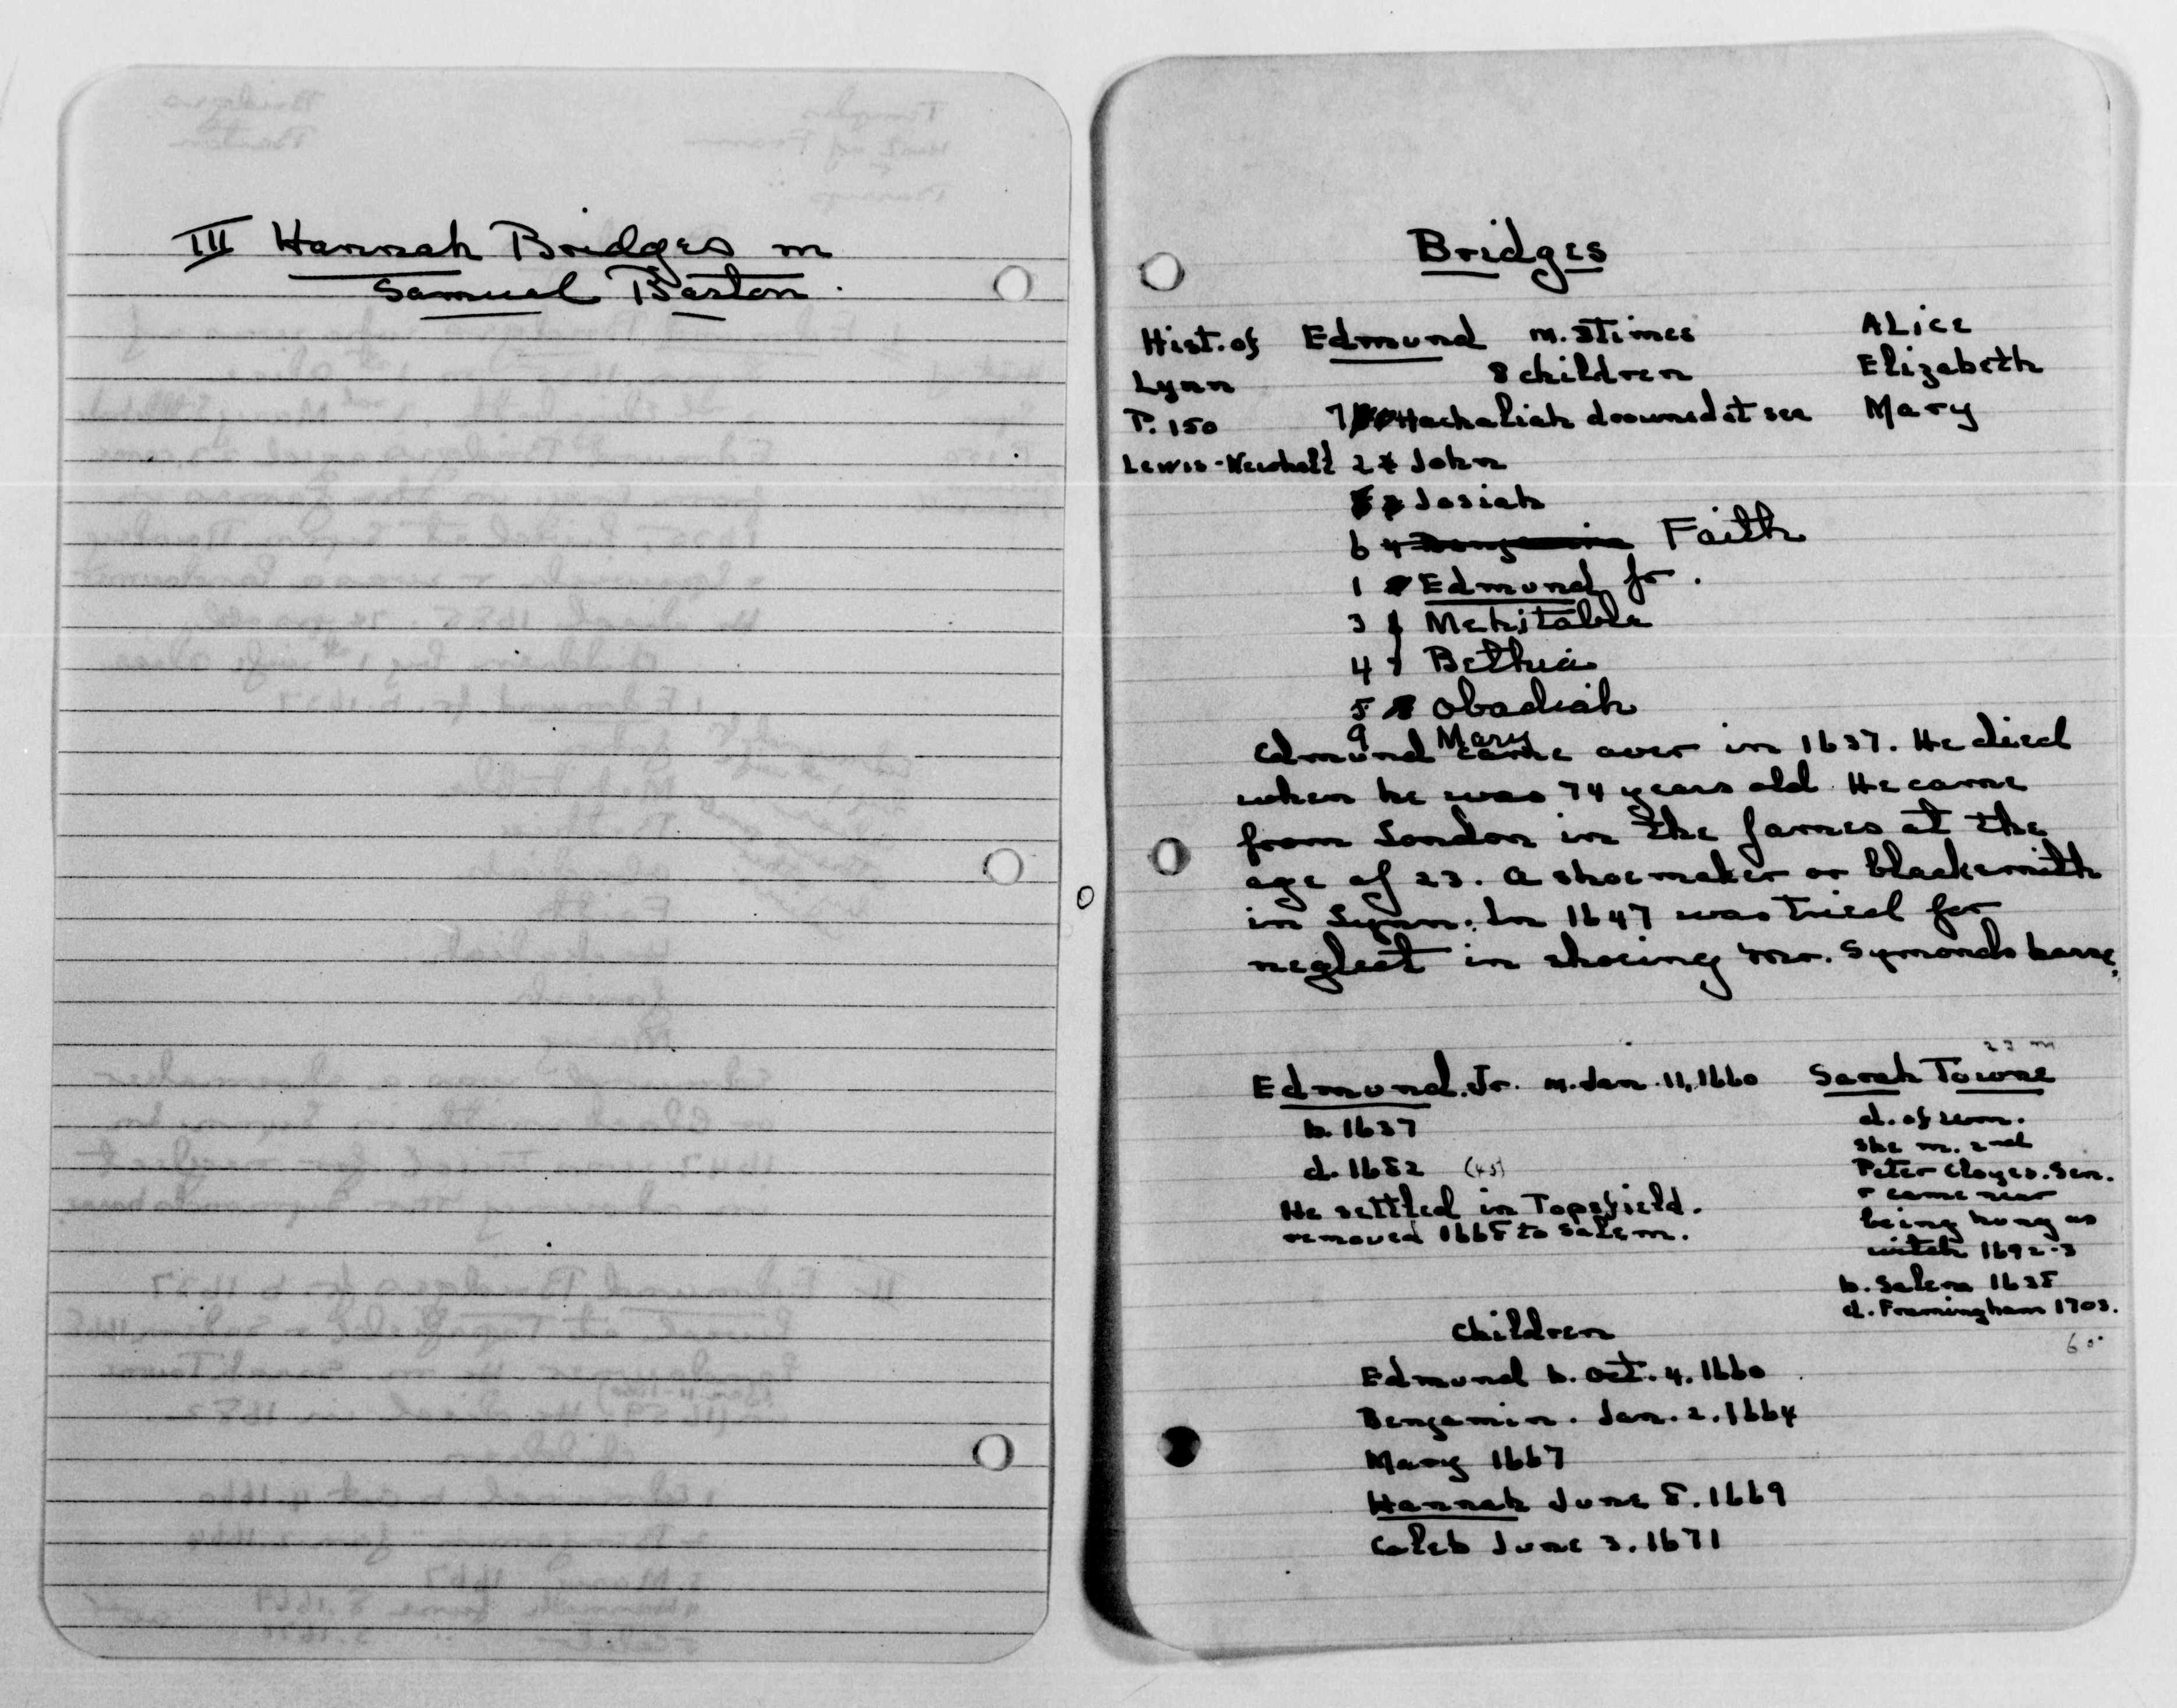 III Hannah Bridges m
Samuel Barton.
Bridges
Hist. of Edmund m. 3 times Alice
Lynn 8 children Elizabeth
P. 150 7 Hachaliah drowned at sea Mary
Lewis-Newhall 2 John
Josiah
6 Faith
1 Edmund Jr.
3 Mehitable
4 Bethia
5 Obadiah
9 Mary
Edmund came over in 1637. He died
when he was 74 years old. He came
from London in the James at the
age of 23. A shoemaker or blacksmith
in Lynn. In 1647 was tried for
neglect in shoeing Mr. Symonds horse.
Edmund. Jr. m. Jan. 11, 1660 Sarah Towne
b. 1637
d. 1682 (45)
He settled in Topsfield.
removed 1668 to Salem.
d. of
she m. 2nd
Peter Cloyes. Sen.
+ came near
being hung as
witch 1692-3
b. Salem 1638
d. Framingham 1703.
Children
Edmund b. Oct. 4. 1660
Benjamin. Jan. 2. 1664
Mary 1667
Hannah June 8. 1669
Caleb June 3. 1671